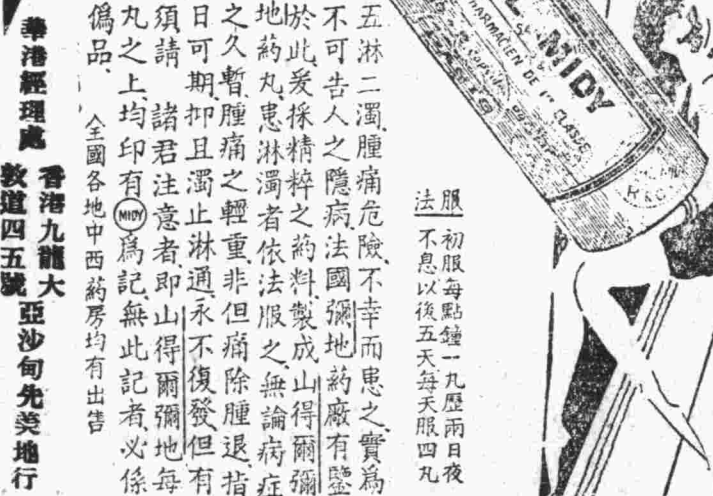 MIDY
PHARMACIEN DE 1re CLASSE
服法
初服每點鐘一丸歷兩日夜
不息以後五天每天服四丸
五淋二濁、腫痛危險、不幸而患之、實爲
不可告人之隱病、法國彌地葯廠有鑒
於此、爰採精粹之葯料、製成山得爾彌
地葯丸、患淋濁者依法服之、無論病症
之久暫、腫痛之輕重、非但痛除腫退、指
日可期、抑且濁止淋通、永不復發、但有
須請 諸君注意者、即山得爾彌地每
丸之上、均印有MIDY爲記、無此記者、必係
僞品、
全國各地中西葯房均有出售
華港經理處
香港九龍大
敦道四五號
亞沙甸先美地行